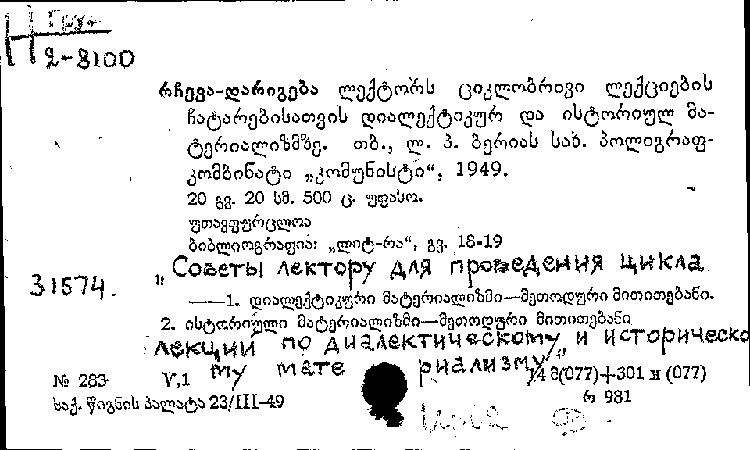 Н Груз
2-8100
რჩევა-დარიგება ლექტორს ციკლობრივი ლექციების
ჩატარებისათვის დიალექტიკურ და ისტორიულ მა-
ტერიალიზმზე. თბ., ლ. პ. ბერიას სახ. პოლიგრაფ-
კომბინატი „კომუნისტი“, 1949.
20 გვ. 20 სმ. 500 ც. უფასო.
უთავფურცლოა
ბიბლიოგრაფია: „ლიტ-რა“, გვ. 18-19
"Советы лектору для проведения цикла
31574.
——1. დიალექტიკური მატერიალიზმი—მეთოდური მითითებანი.
2. ისტორიული მატერიალიზმი—მეთოდური მითითებანი
лекций по диалектическому и историческо
му мате риализму"
№ 283 V,1 14მ(077)+301 и (077)
საქ. წიგნის პალატა 23/III-49 რ 981